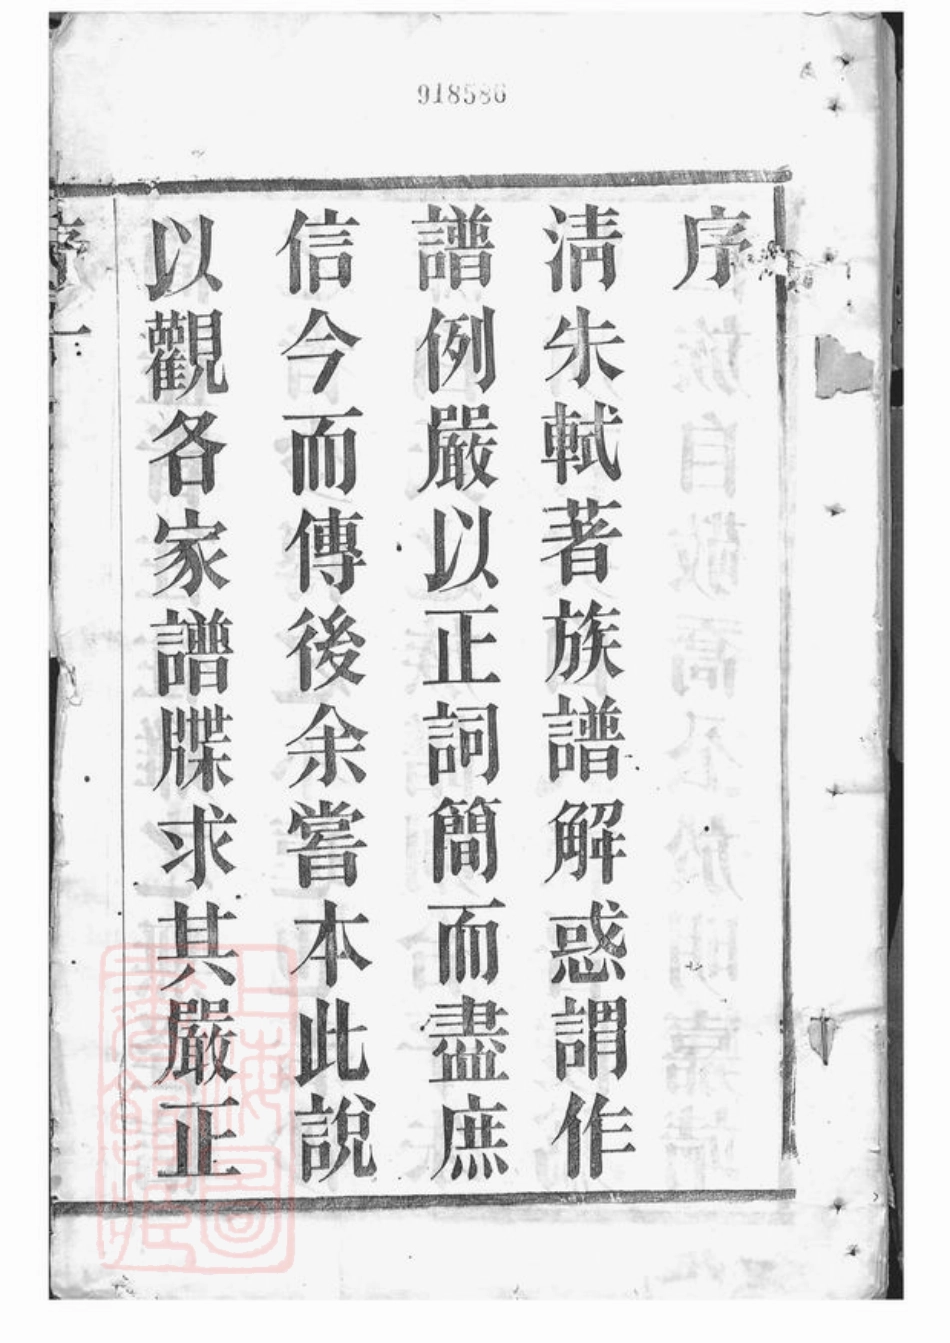 918586
序
淸朱軾著族譜解惑謂作
譜例嚴以正詞簡而盡庶
信今而傳後余嘗本此說
以觀各家譜牒求其嚴正
序
一